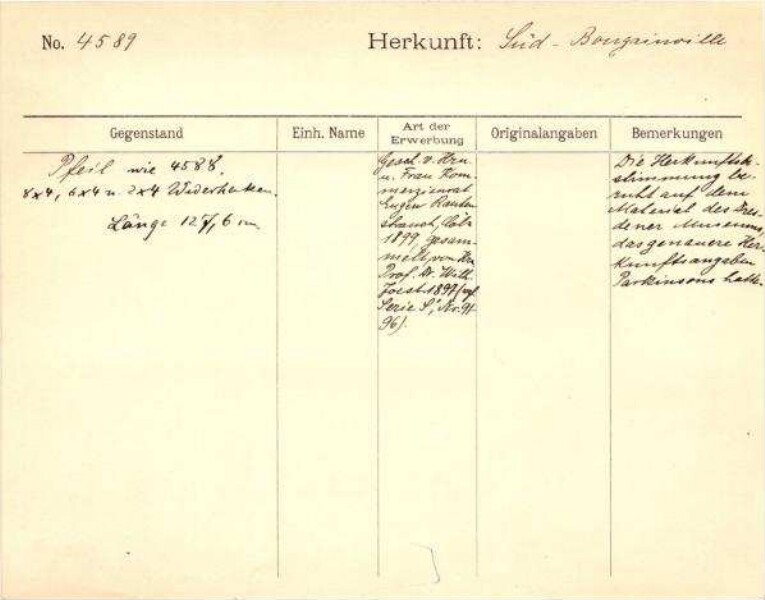 No. 4589
Herkunft: Süd-Bougainville
Gegenstand
Einh. Name
Art der
Erwerbung
Originalangaben
Bemerkungen
Pfeil wie 4588.
8x4, 6x4 u. 2x4 Widerhaken.
Länge 127,6 cm
Gesch. v. Hrn
u. Frau Kom-
merzienrat
Eugen Rauten-
strauch, Cöln
1899, gesam-
melt von Hn
Prof. Dr. Wilh.
Joest 1897 (vgl.
Serie S, Nr. 91-
96).
Die Herkunftsbe-
stimmung be-
ruht auf dem
Material des Dres-
dener Museums,
das genauere Her-
kunftsangaben
Parkinsons hatte.